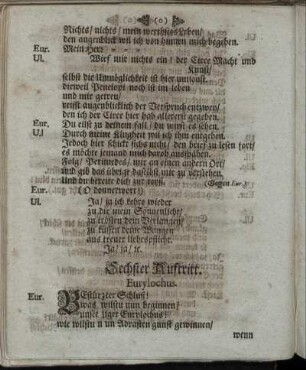 (0)
Nichts/ nichts/ mein werthstes Leben/
den augenblick wil ich von hinnen mich begeben.
Eur. Mein Herr
Ul. Wirf mir nichts ein/ der Circe Macht und
Kunst/
selbst die Unmögligkeit ist hier umsonst.
dieweil Penelope noch ist im leben
und mir getreu/
reisst augenblicklich der Verspruch entzwey/
den ich der Circe hier hab allererst gegeben.
Eur. Du eilst zu deinem fall/ du wirst es sehen.
Ul Durch meine Klugheit wil ich ihm entgehen.
Jedoch hier schickt sichs nicht/ den brief zu lesen fort/
es möchte jemand mich darob ausspähen.
Folg/ Perimedes/ mir an einen andern Ort/
und gib das übrige daselbst mir zu verstehen.
Und du bereite dich zur reise. (Gegen Eur.)
Eur. (O donnerwort!)
Ul. Ja/ ja ich kehre wieder
zu die mein Sonnenlicht/
zu trösten dein Verlangen/
zu küssen deine Wangen
aus treuer liebespflicht.
Ja/ ja/ ic.
Sechster Auftritt.
Eurylochus.
Eur. Bestürzter Schluß!
was wilstu nun beginnen/
unseliger Eurylochus!
wie wilstu nun Adrasten gunst gewinnen/
wenn